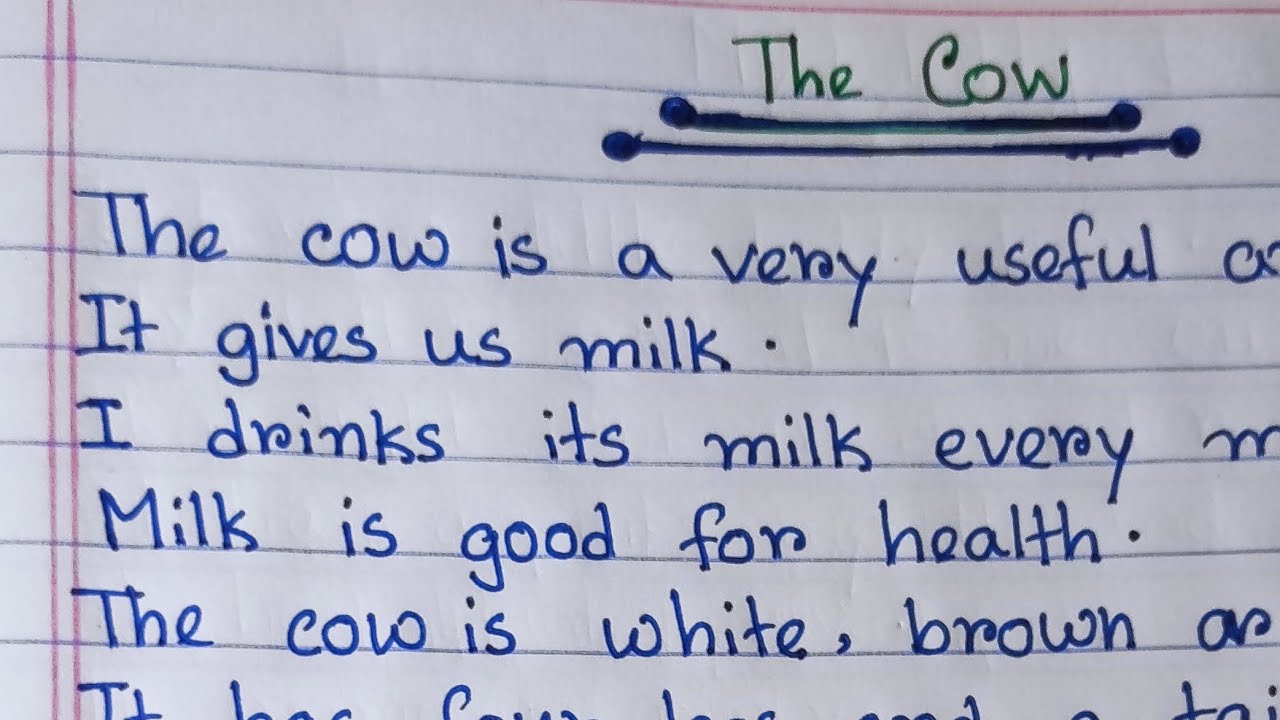 The Cow
The cow is a very useful
It gives us milk.
I drinks its milk every
Milk is good for health.
The cow is white, brown
It has four legs and a